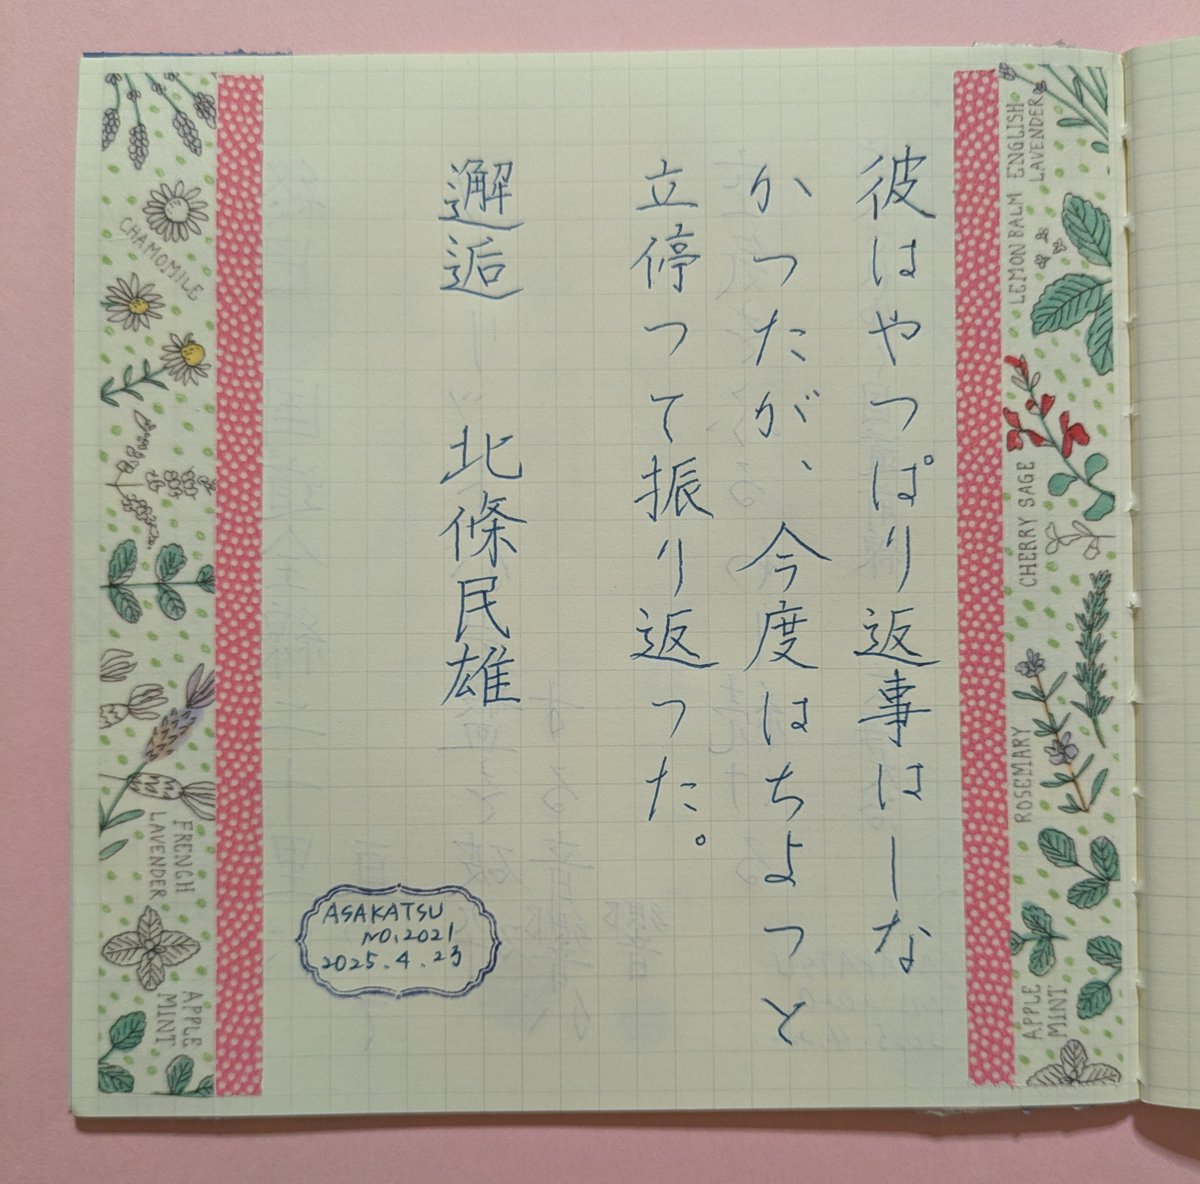 彼はやつぱり返事はしな
かつたが、今度はちよつと
立停つて振り返つた。
邂逅　北條民雄
ASAKATSU
NO.2021
2025.4.23
CHAMOMILE
FRENCH
LAVENDER
APPLE
MINT
ENGLISH
LAVENDER
LEMON BALM
CHERRY SAGE
ROSEMARY
APPLE
MINT